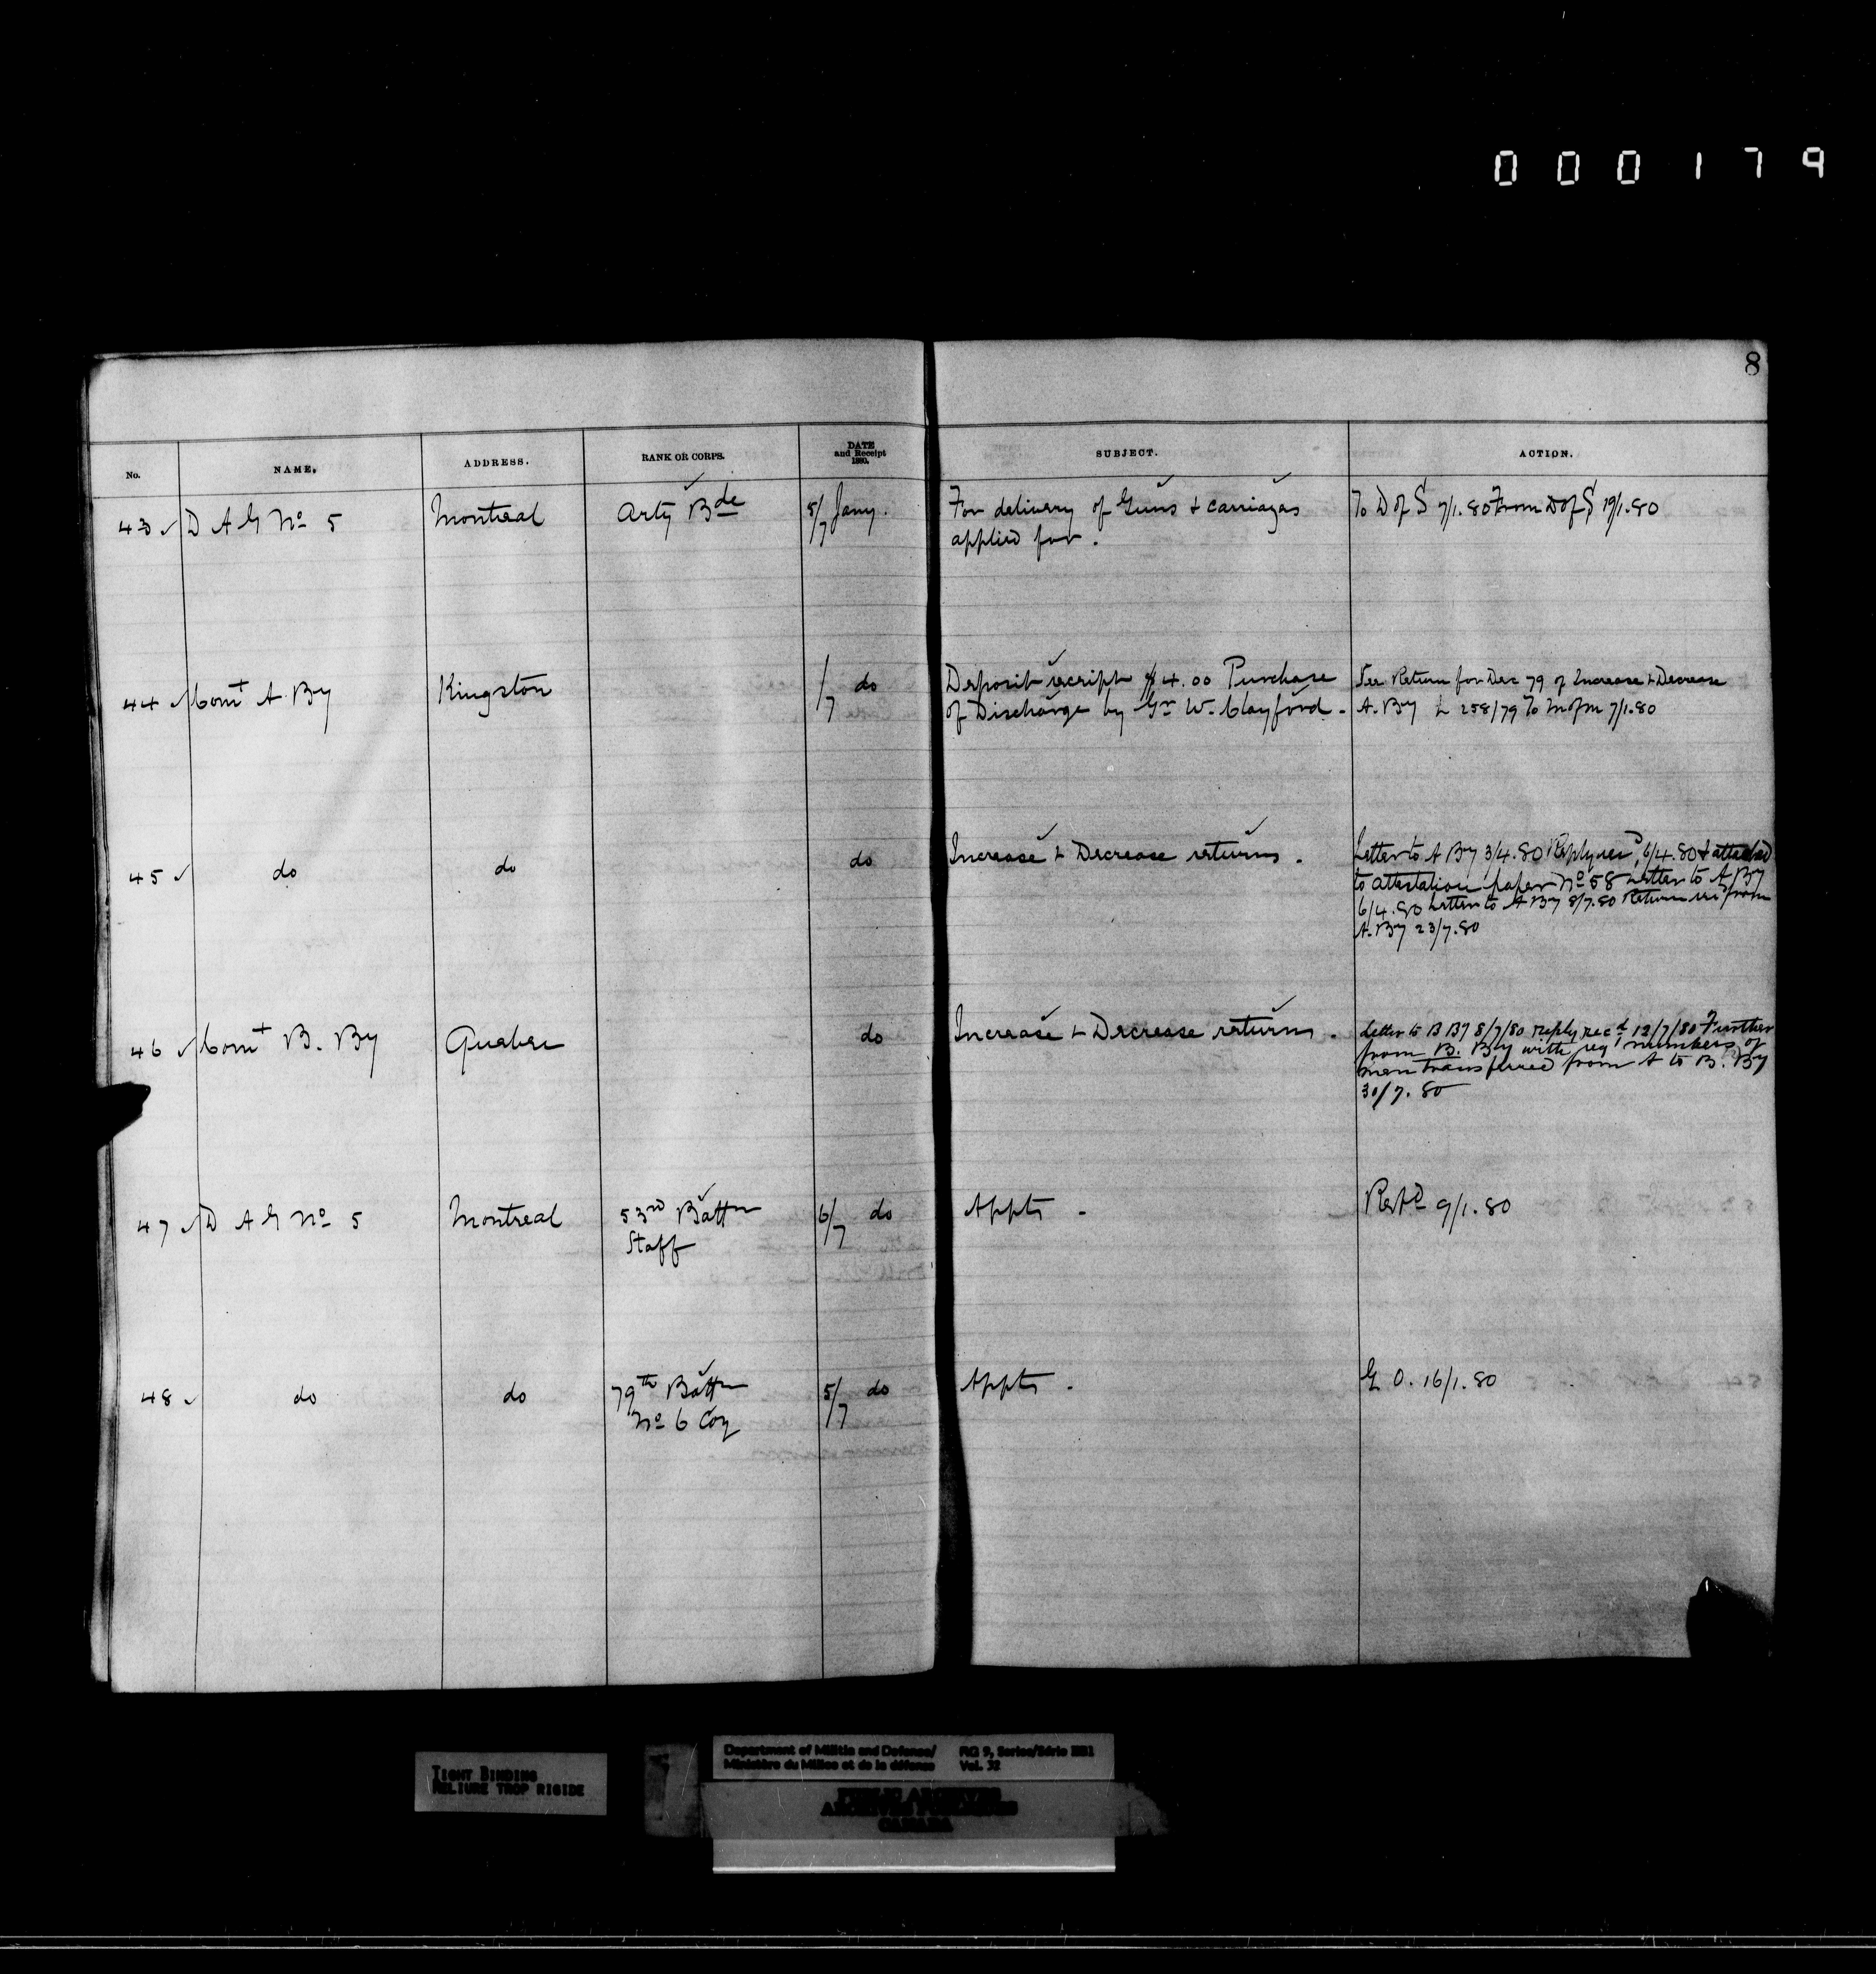 000179
8
No. NAME. ADDRESS. RANK OR CORPS. DATE and Receipt 1880. SUBJECT. ACTION.
43 ✓ D A G No 5 Montreal Arty Bde 5/7 Jany. For delivery of Guns & Carriages To D of S 7/1.80 From D of S 19/1.80
applied for.
44 ✓ Comt A. By Kingston /7 do Deposit receipt $4.00 Purchase See Return for Dec 79 of Increase & Decrease
of Discharge by Gr W. Clayford. A. By L 258/79 To M of M 7/1.80
45 ✓ do do do Increase & Decrease returns. Letter to A By 3/4.80 Reply recd 6/4.80 & attached
to attestation paper No 58 Letter to A By
6/4.80 Letter to A By 8/7.80 Return rec from
A. By 23/7.80
46 ✓ Comt B. By Quebec do Increase & Decrease returns. Letter to B By 8/7/80 reply recd 12/7/80 Further
from B. By with regl numbers of
men transferred from A to B. By
30/7.80
47 ✓ D A G No 5 Montreal 53rd Battn 6/7 do Appts. 9/1.80
Staff
48 ✓ do do 79th Battn 5/7 do Appts. G O. 16/1.80
No 6 Coy
TIGHT BINDING
RELIURE TROP RIGIDE
Department of Militia and Defence/ RG 9, Series/Série IIB1
Ministère du Milice et de la défense Vol. 32
PUBLIC ARCHIVES
ARCHIVES PUBLIQUES
CANADA